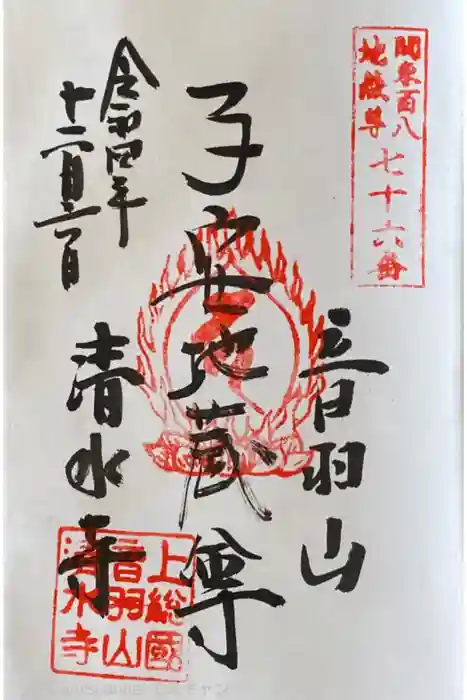 関東百八
地蔵尊
七十六番
音羽山
子安地蔵尊
清水寺
令和四年
十二月三日
上総國
音羽山
清水寺